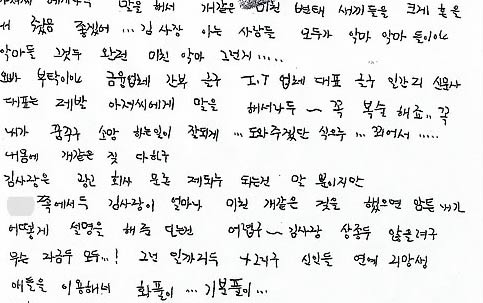 말을 해서 개같은 미친 변태 새끼들을 크게 혼을
서 줬음 좋겠어 ... 김 사장 아는 사람들 모두가 악마 악마 들이야
악마들 그것두 완전 미친 악마 그런거 .....
오빠 부탁이야 금융업체 간부 하구 I.T 업체 대표 하구 일간지 신문사
대표는 제발 아저씨에게 말을 해서라두 ~ 꼭 복수 해죠.. 꼭
내가 꿈꾸구 소망 하는일이 잘되게 ... 도와주겠단 식으루 ... 꾀어서 .....
내몸에 개같은 짓 다하구
김사장은 광고 회사 모든 제의는 되는건 말 뿐이지만
쪽에서두 김사장이 얼마나 미친 개같은 것을 했으면 암튼 내가
어떻게 설명을 해 주 는건 어렵구 ~ 김사장 상종두 않을려구
무슨 자금두 모두...! 그년 일까리두 신인들 연예 지망생
애들을 이용해서 화풀이 ... 기분풀이 ...